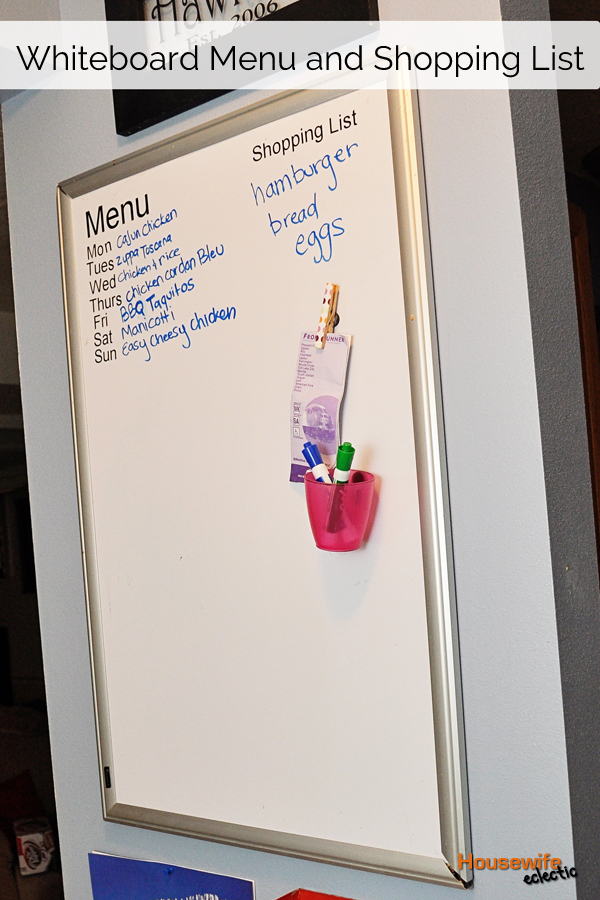 Est. 2006
Whiteboard Menu and Shopping List
Menu
Mon Cajun Chicken
Tues Zuppa Toscana
Wed Chicken & rice
Thurs Chicken Cordon Bleu
Fri BBQ Taquitos
Sat Manicotti
Sun Easy Cheesy Chicken
Shopping List
hamburger
bread
eggs
Housewife
eclectic